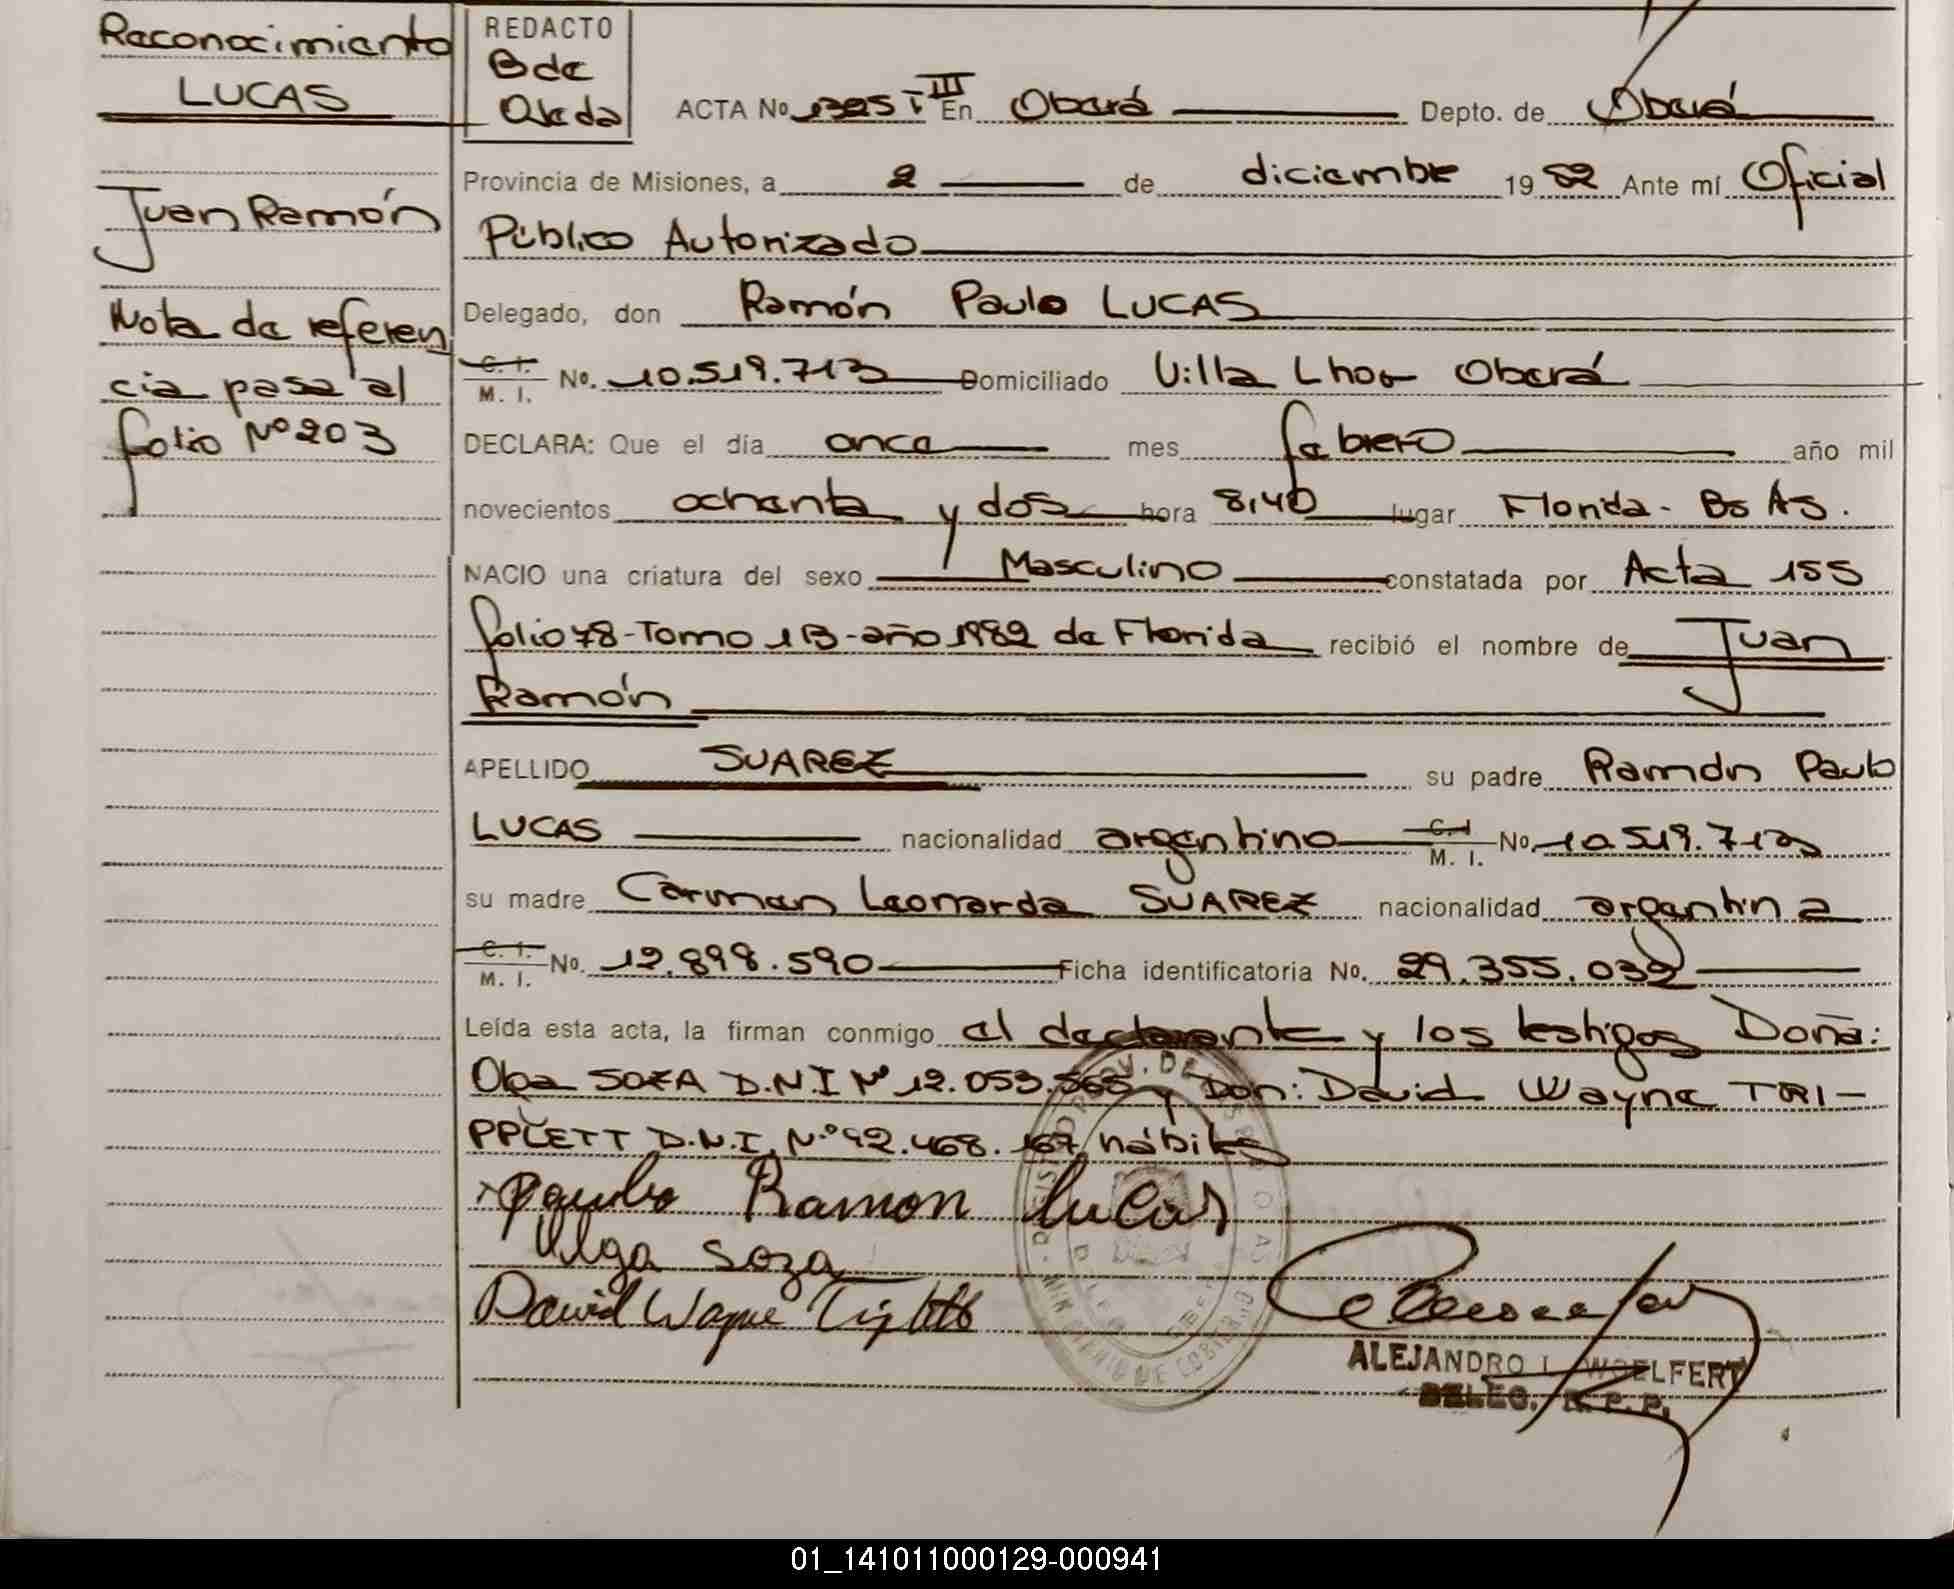 Reconocimiento
LUCAS
Juan Ramón
Nota de referen
cia pasa al
folio Nº 203
REDACTO
B de
Ojeda
ACTA No 1325 T III En Oberá Depto. de Oberá
Provincia de Misiones, a 2 de diciembre 1982 Ante mí Oficial
Público Autorizado
Delegado, don Ramón Paulo LUCAS
C. I. M. I. No. 10.519.713 Domiciliado Villa Oberá
DECLARA: Que el día once mes febrero año mil
novecientos ochenta y dos hora 8,40 lugar Florida - Bs As.
NACIO una criatura del sexo Masculino constatada por Acta 155
folio 78 - Tomo 1B - año 1982 de Florida recibió el nombre de Juan
Ramón
APELLIDO SUAREZ su padre Ramón Paulo
LUCAS nacionalidad argentino C. I. M. I. No. 10.519.713
su madre Carmen Leonarda SUAREZ nacionalidad argentina
C. I. M. I. No. 12.898.590 Ficha identificatoria No. 29.355.032
Leída esta acta, la firman conmigo el declarante y los testigos Doña:
Olga SOZA D.N.I Nº 12.053.565 y Don: David Wayne TRI-
PPLETT D.N.I. Nº 92.468.167, hábiles
Ramon Lucas
Olga Soza
David Wayne
ALEJANDRO L. WOELFERT
DELEG. R. P. P.
01_141011000129-000941